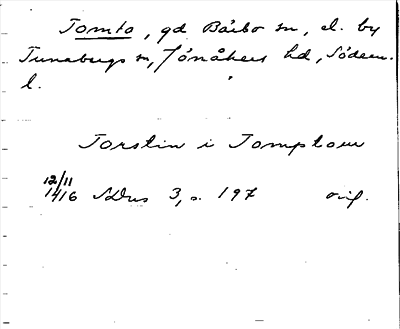 Tomta, gd Bärbo sn, el. by
Tunabergs sn, Jönåkers hd, Söderm.
l.
Torstin i Tomptom
12/11
1416 SDns 3, s. 197 orig.